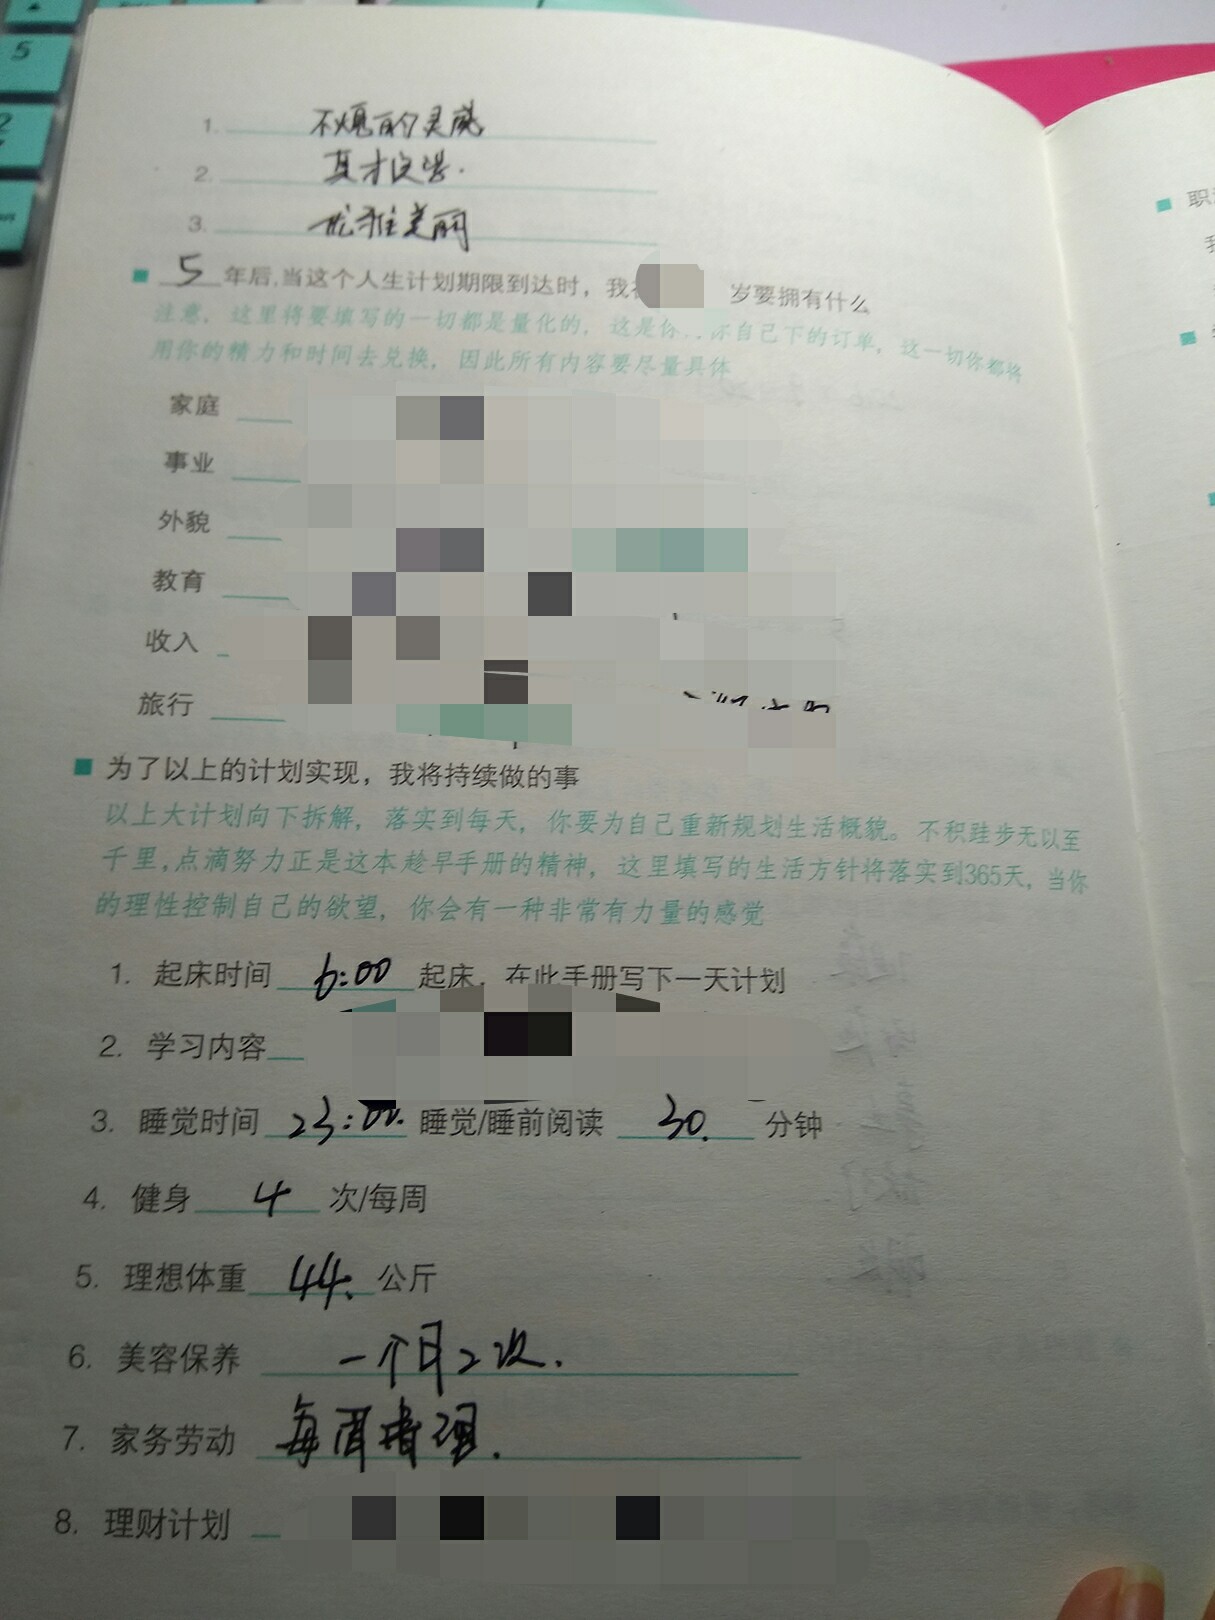 1. 不熄的灵感
2. 真才
3. 优雅美丽
5 年后,当这个人生计划期限到达时，我 岁要拥有什么
注意，这里将要填写的一切都是量化的，这是你 你自己下的订单，这一切你都将
用你的精力和时间去兑换，因此所有内容要尽量具体
职
家庭
事业
外貌
教育
收入
旅行
为了以上的计划实现，我将持续做的事
以上大计划向下拆解，落实到每天，你要为自己重新规划生活概貌。不积跬步无以至
千里,点滴努力正是这本趁早手册的精神，这里填写的生活方针将落实到365天，当你
的理性控制自己的欲望，你会有一种非常有力量的感觉
1. 起床时间 6:00 起床，在此手册写下一天计划
2. 学习内容
3. 睡觉时间 23:00. 睡觉/睡前阅读 30. 分钟
4. 健身 4 次/每周
5. 理想体重 44. 公斤
6. 美容保养 一个月2次.
7. 家务劳动 每周清理.
8. 理财计划
5
2